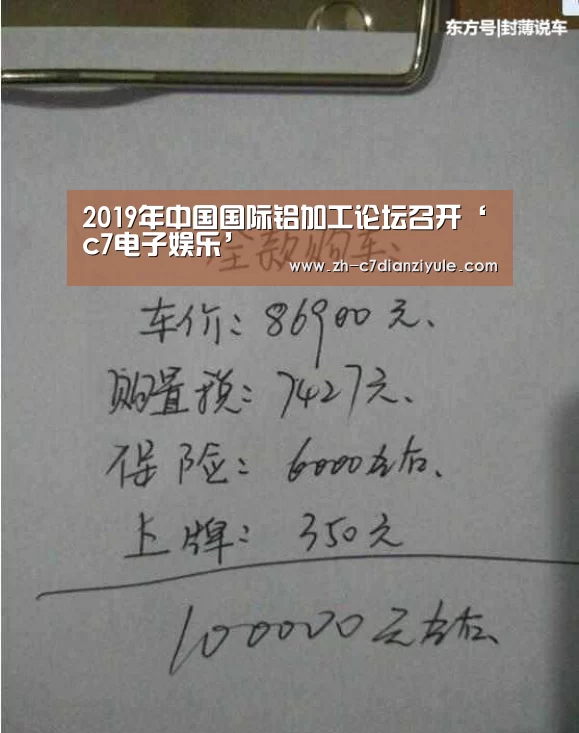 东方号|封薄说车
2019年中国国际铝加工论坛召开‘
c7电子娱乐’
全款购车:
www.zh-c7dianziyule.com
车价: 86900元、
购置税: 7427元、
保险: 6000左右、
上牌: 350元
100000元左右、